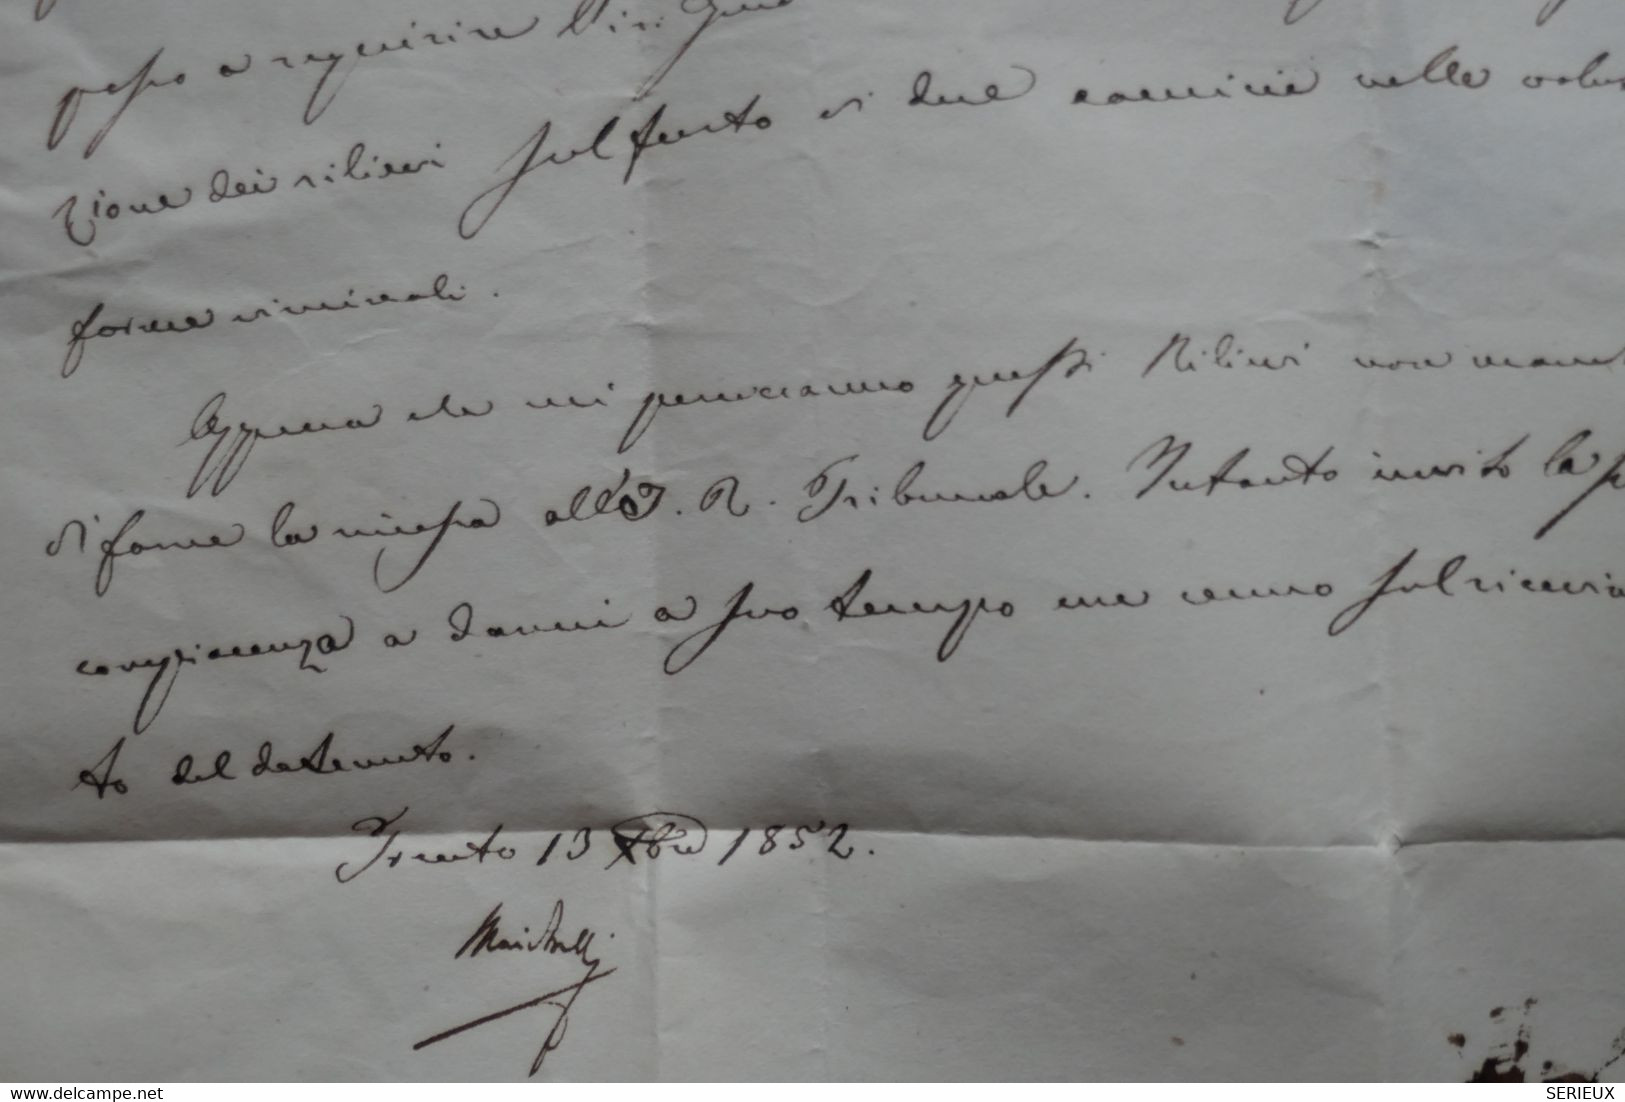 passo a requirire
zione dei rilievi sul furto di due camicie nelle volu
forme criminali.
Appena che mi perverranno questi Rilievi non man
di farne la messa all'I. R. Tribunale. Intanto invito la
compiacenza a darmi a suo tempo un cenno sul ricevi
to del detenuto.
Trento 13 Xbre 1852.
delcampe.net
SERIEUX